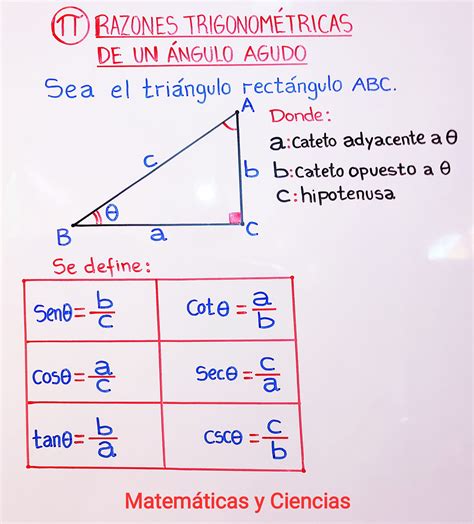 π RAZONES TRIGONOMÉTRICAS
DE UN ÁNGULO AGUDO
Sea el triángulo rectángulo ABC.
A
Donde:
a: Cateto adyacente a θ
c
b
b: Cateto opuesto a θ
C: hipotenusa
θ
B
a
C
Se define:
Senθ = b/c
Cotθ = a/b
Cosθ = a/c
Secθ = c/a
tanθ = b/a
CSCθ = c/b
Matemáticas y Ciencias